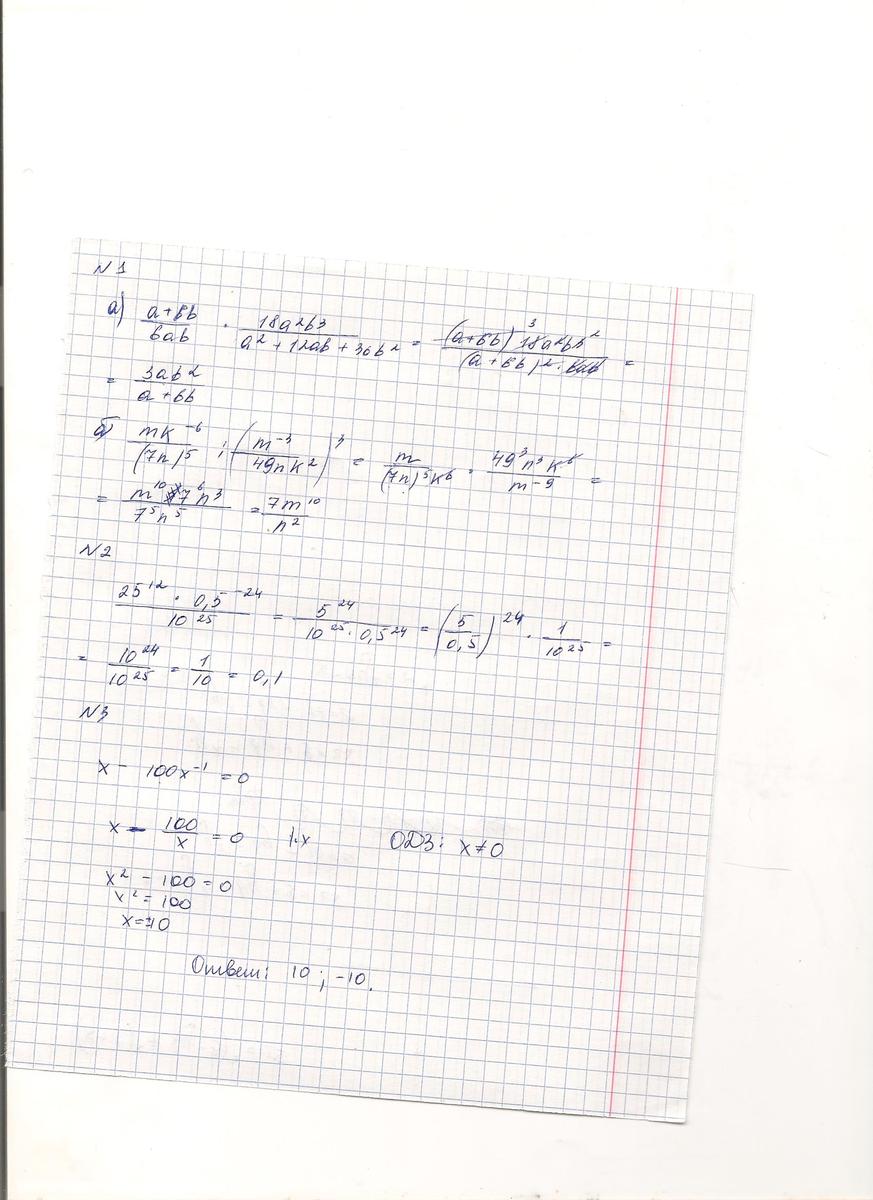 N1
а) (a+6b)/(6ab) · (18a²b³)/(a²+12ab+36b²) = ((a+6b) 18a²b³ ³ ²)/((a+6b)² · 6ab) =
= (3ab²)/(a+6b)
б) (mk⁻⁶)/((7n)⁵) : (m⁻³/(49nk²))³ = m/((7n)⁵k⁶) · (49³n³k⁶)/(m⁻⁹) =
= (m¹⁰ 7⁶n³)/(7⁵n⁵) = (7m¹⁰)/(n²)
N2
(25¹² · 0,5⁻²⁴)/(10²⁵) = 5²⁴/(10²⁵ · 0,5²⁴) = (5/0,5)²⁴ · 1/10²⁵ =
= 10²⁴/10²⁵ = 1/10 = 0,1
N3
x - 100x⁻¹ = 0
x - 100/x = 0 |·x ОДЗ: x≠0
x² - 100 = 0
x² = 100
x=±10
Ответ: 10 ; -10.